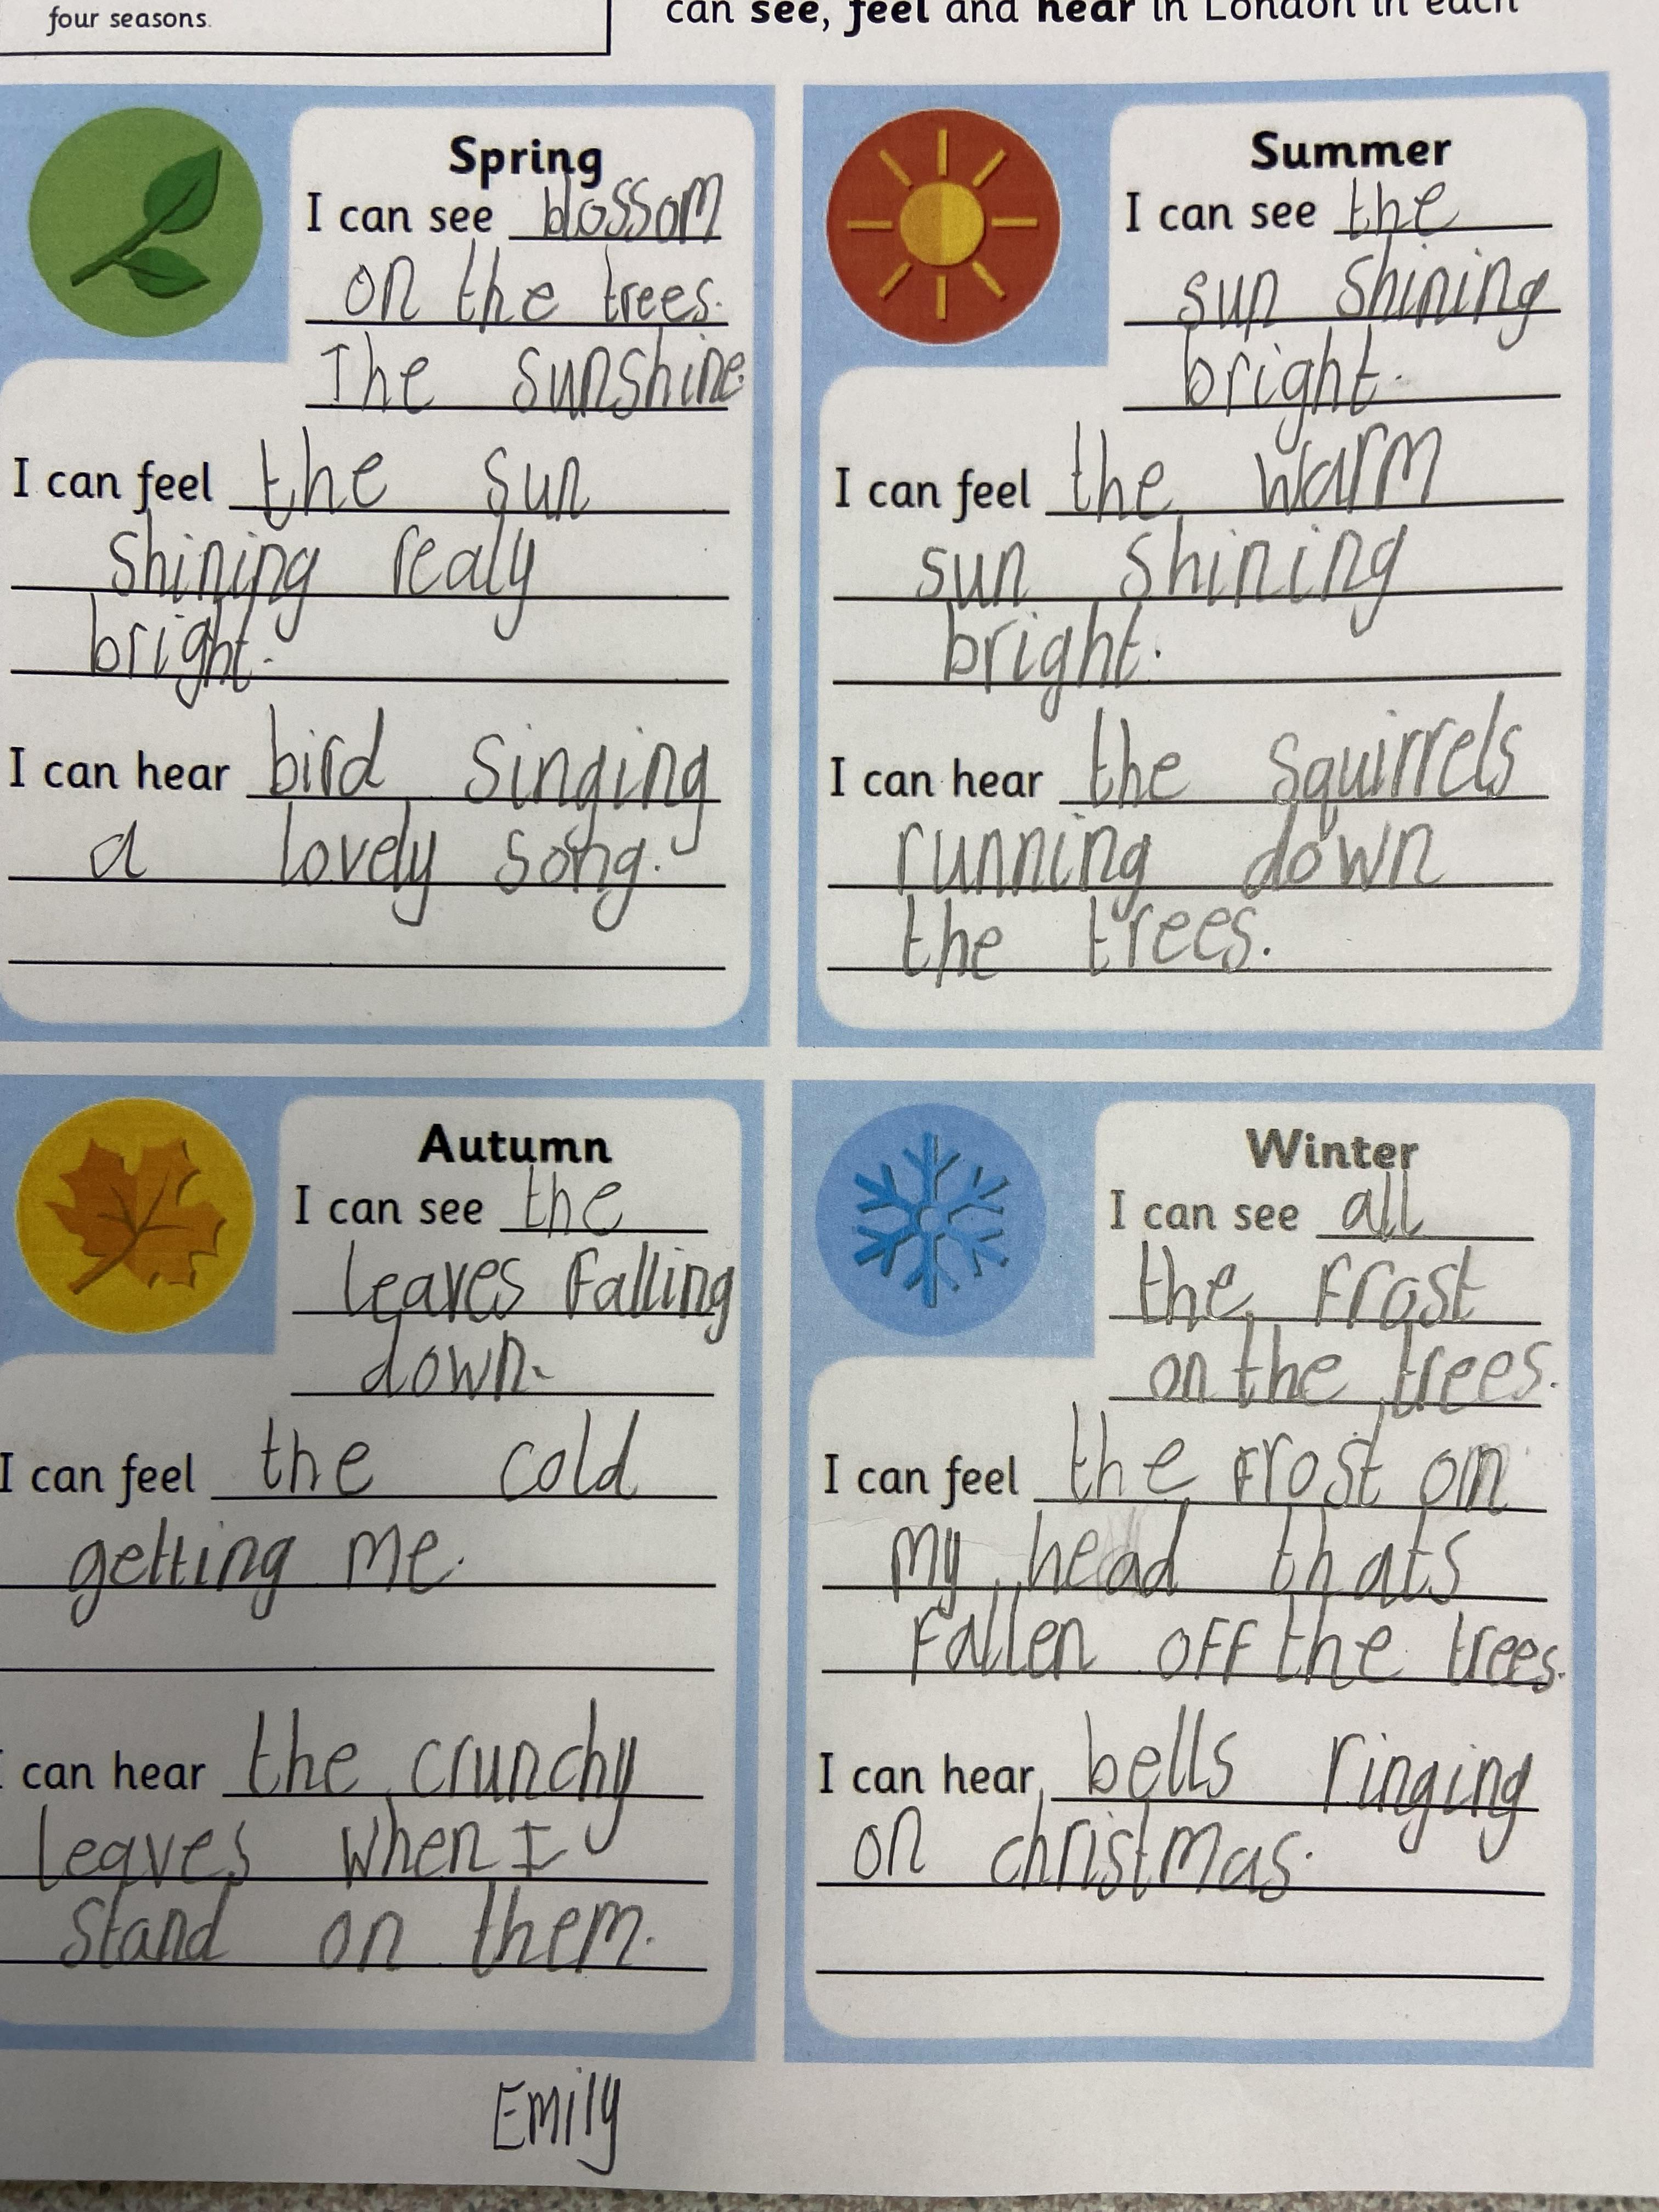 four seasons.
can see, feel and hear in London in each
Spring
I can see blossom
on the trees.
The sunshine.
I can feel the sun
shining realy
bright.
I can hear bird singing
a lovely song.
Summer
I can see the
sun shining
bright.
I can feel the warm
sun shining
bright.
I can hear the squirrels
running down
the trees.
Autumn
I can see the
leaves Falling
down.
I can feel the cold
getting me.
I can hear the crunchy
leaves when I
stand on them.
Winter
I can see all
the Frost
on the trees.
I can feel the Frost on
my head thats
Fallen oFF the trees.
I can hear bells ringing
on christmas.
Emily